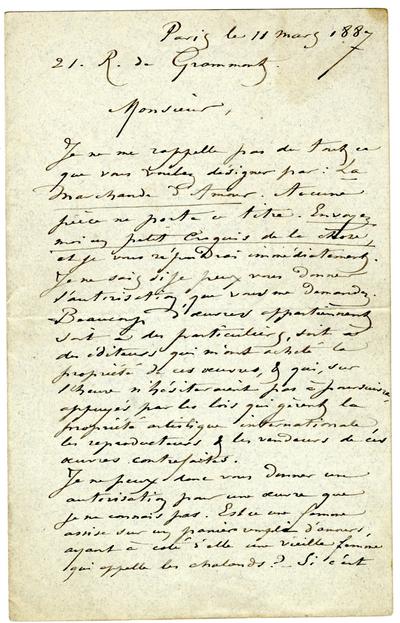 Paris le 11 mars 1887
21. R. de Grammont.
Monsieur,
Je ne me rappelle pas de tout ce
que vous voulez désigner par : La
Marchande d'Amour. Aucune
pièce ne porte ce titre. Envoyez
moi un petit Croquis de la chose,
et je vous répondrai immédiatement.
Je ne sais si je peux vous donner
l'autorisation, que vous me demandez.
Beaucoup d'œuvres appartiennent
soit à des particuliers, soit à
des éditeurs qui m'ont acheté la
propriété de ces œuvres, & qui, sur
l'heure n'hésiteraient pas à poursuivre,
appuyés par les lois qui gèrent la
propriété artistique internationale
les reproducteurs & les vendeurs de ces
œuvres contrefaites.
Je ne peux donc vous donner une
autorisation pour une œuvre que
je ne connais pas. Est ce une femme
assise sur un panier rempli d'amours,
ayant à coté d'elle une vieille femme
qui appelle les chalands ? Si c'est